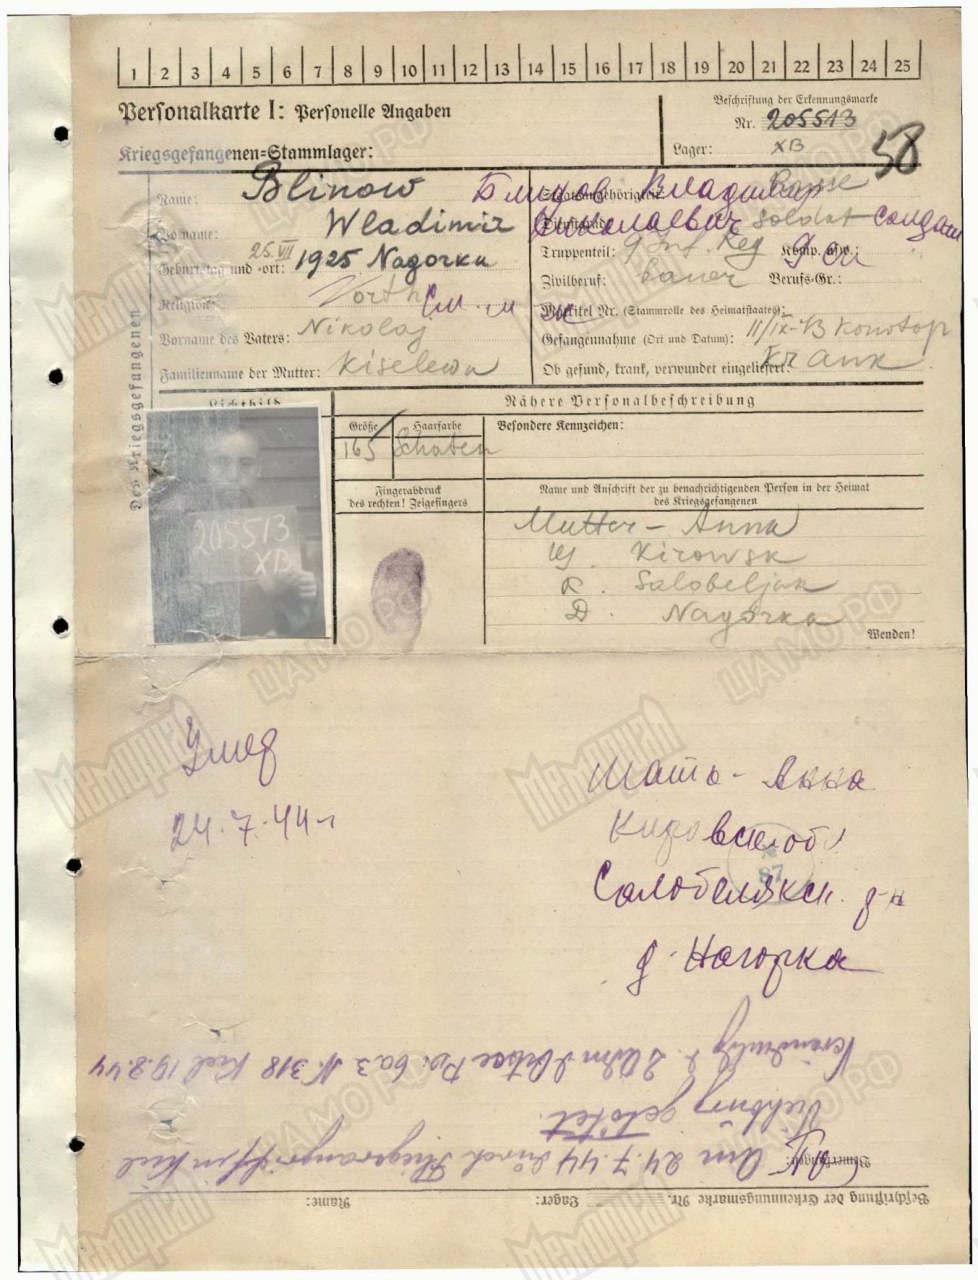 1 2 3 4 5 6 7 8 9 10 11 12 13 14 15 16 17 18 19 20 21 22 23 24 25
Personalkarte I: Personelle Angaben
Beschriftung der Erkennungsmarke
Nr. 205513
Kriegsgefangenen-Stammlager:
Lager: XB
58
Des Kriegsgefangenen
Name: Blinow
Блинов Владимир
Staatsangehörigkeit: Russe
Vorname: Wladimir
Николаевич
Soldat солдат
Geburtstag und -ort: 25.VII 1925 Nagorka
Truppenteil: 9 Inf. Reg Komp. usw.:
Zivilberuf: Bauer Berufs-Gr.:
Religion: Orth
Matrikel Nr. (Stammrolle des Heimatstaates):
Vorname des Vaters: Nikolaj
Gefangennahme (Ort und Datum): 11/IX-43 Konotop
Familienname der Mutter: Kiselewa
Ob gesund, krank, verwundet eingeliefert: Krank
Lichtbild
Nähere Personalbeschreibung
Größe Haarfarbe Besondere Kennzeichen:
165
205513
XB
Fingerabdruck
des rechten! Zeigefingers
Name und Anschrift der zu benachrichtigenden Person in der Heimat
des Kriegsgefangenen
Mutter - Anna
Kirowsk
R. Salobeljak
D. Nagorka
Wenden!
Умер
24.7.44 г
Мать - Анна
Кировск. обл
87
Салобелякск. р-н
д. Нагорка
N. 318 Kiel 19.8.44
getötet.
Am 24.7.44 durch Fliegerangriff in Kiel
Bemerkungen:
Beschriftung der Erkennungsmarke Nr. Lager: Name:
Мемориал
ЦАМО РФ